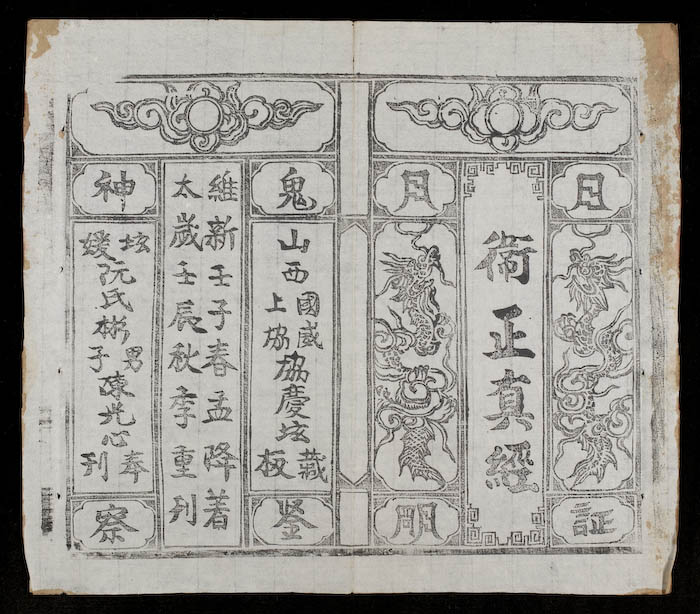 日
証
衛正真經
月
明
鬼
山西國威上協協慶坛藏板
鉴
維新壬子春孟降著
太歲壬辰秋季重刊
神
坛媛阮氏彬男子陳光心奉刊
察